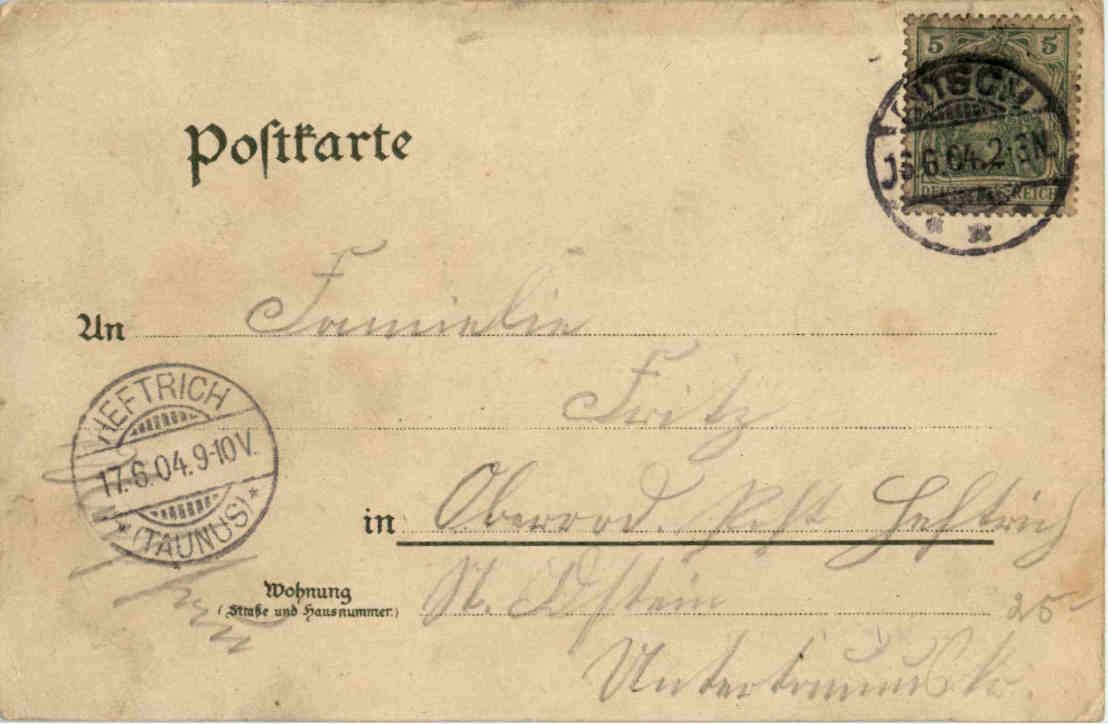 Postkarte
5 5
6.04.2-3N.
REICH
An Familie
Fritz
HEFTRICH
17.6.04.9-10V.
* (TAUNUS) *
in Oberrod. Post Heftrich
Wohnung
(Straße und Hausnummer)
Idstein
Untertaunus